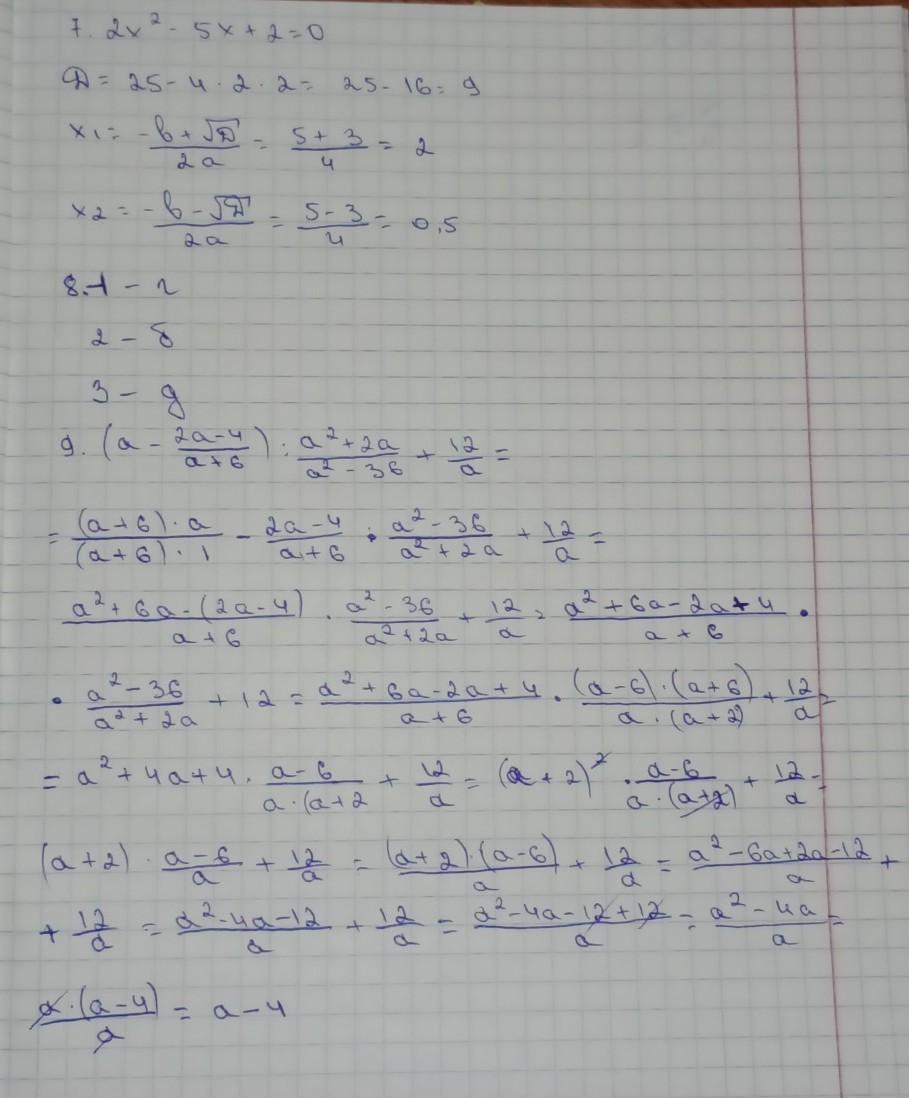 7. 2x² - 5x + 2 = 0
D = 25 - 4 · 2 · 2 = 25 - 16 = 9
x1 = (-b + √D)/(2a) = (5 + 3)/4 = 2
x2 = (-b - √D)/(2a) = (5 - 3)/4 = 0,5
8. 1 - г
2 - б
3 - д
9. (a - (2a-4)/(a+6)) : (a²+2a)/(a²-36) + 12/a =
= ((a+6)·a)/((a+6)·1) - (2a-4)/(a+6) · (a²-36)/(a²+2a) + 12/a =
(a²+6a-(2a-4))/(a+6) · (a²-36)/(a²+2a) + 12/a = (a²+6a-2a+4)/(a+6) ·
· (a²-36)/(a²+2a) + 12 = (a²+6a-2a+4)/(a+6) · ((a-6)·(a+6))/(a·(a+2)) + 12/a =
= a²+4a+4 · (a-6)/(a·(a+2 + 12/a = (a+2)² · (a-6)/(a·(a+2)) + 12/a =
(a+2) · (a-6)/a + 12/a = ((a+2)·(a-6))/a + 12/a = (a²-6a+2a-12)/a +
+ 12/a = (a²-4a-12)/a + 12/a = (a²-4a-12+12)/a = (a²-4a)/a =
(a·(a-4))/a = a-4